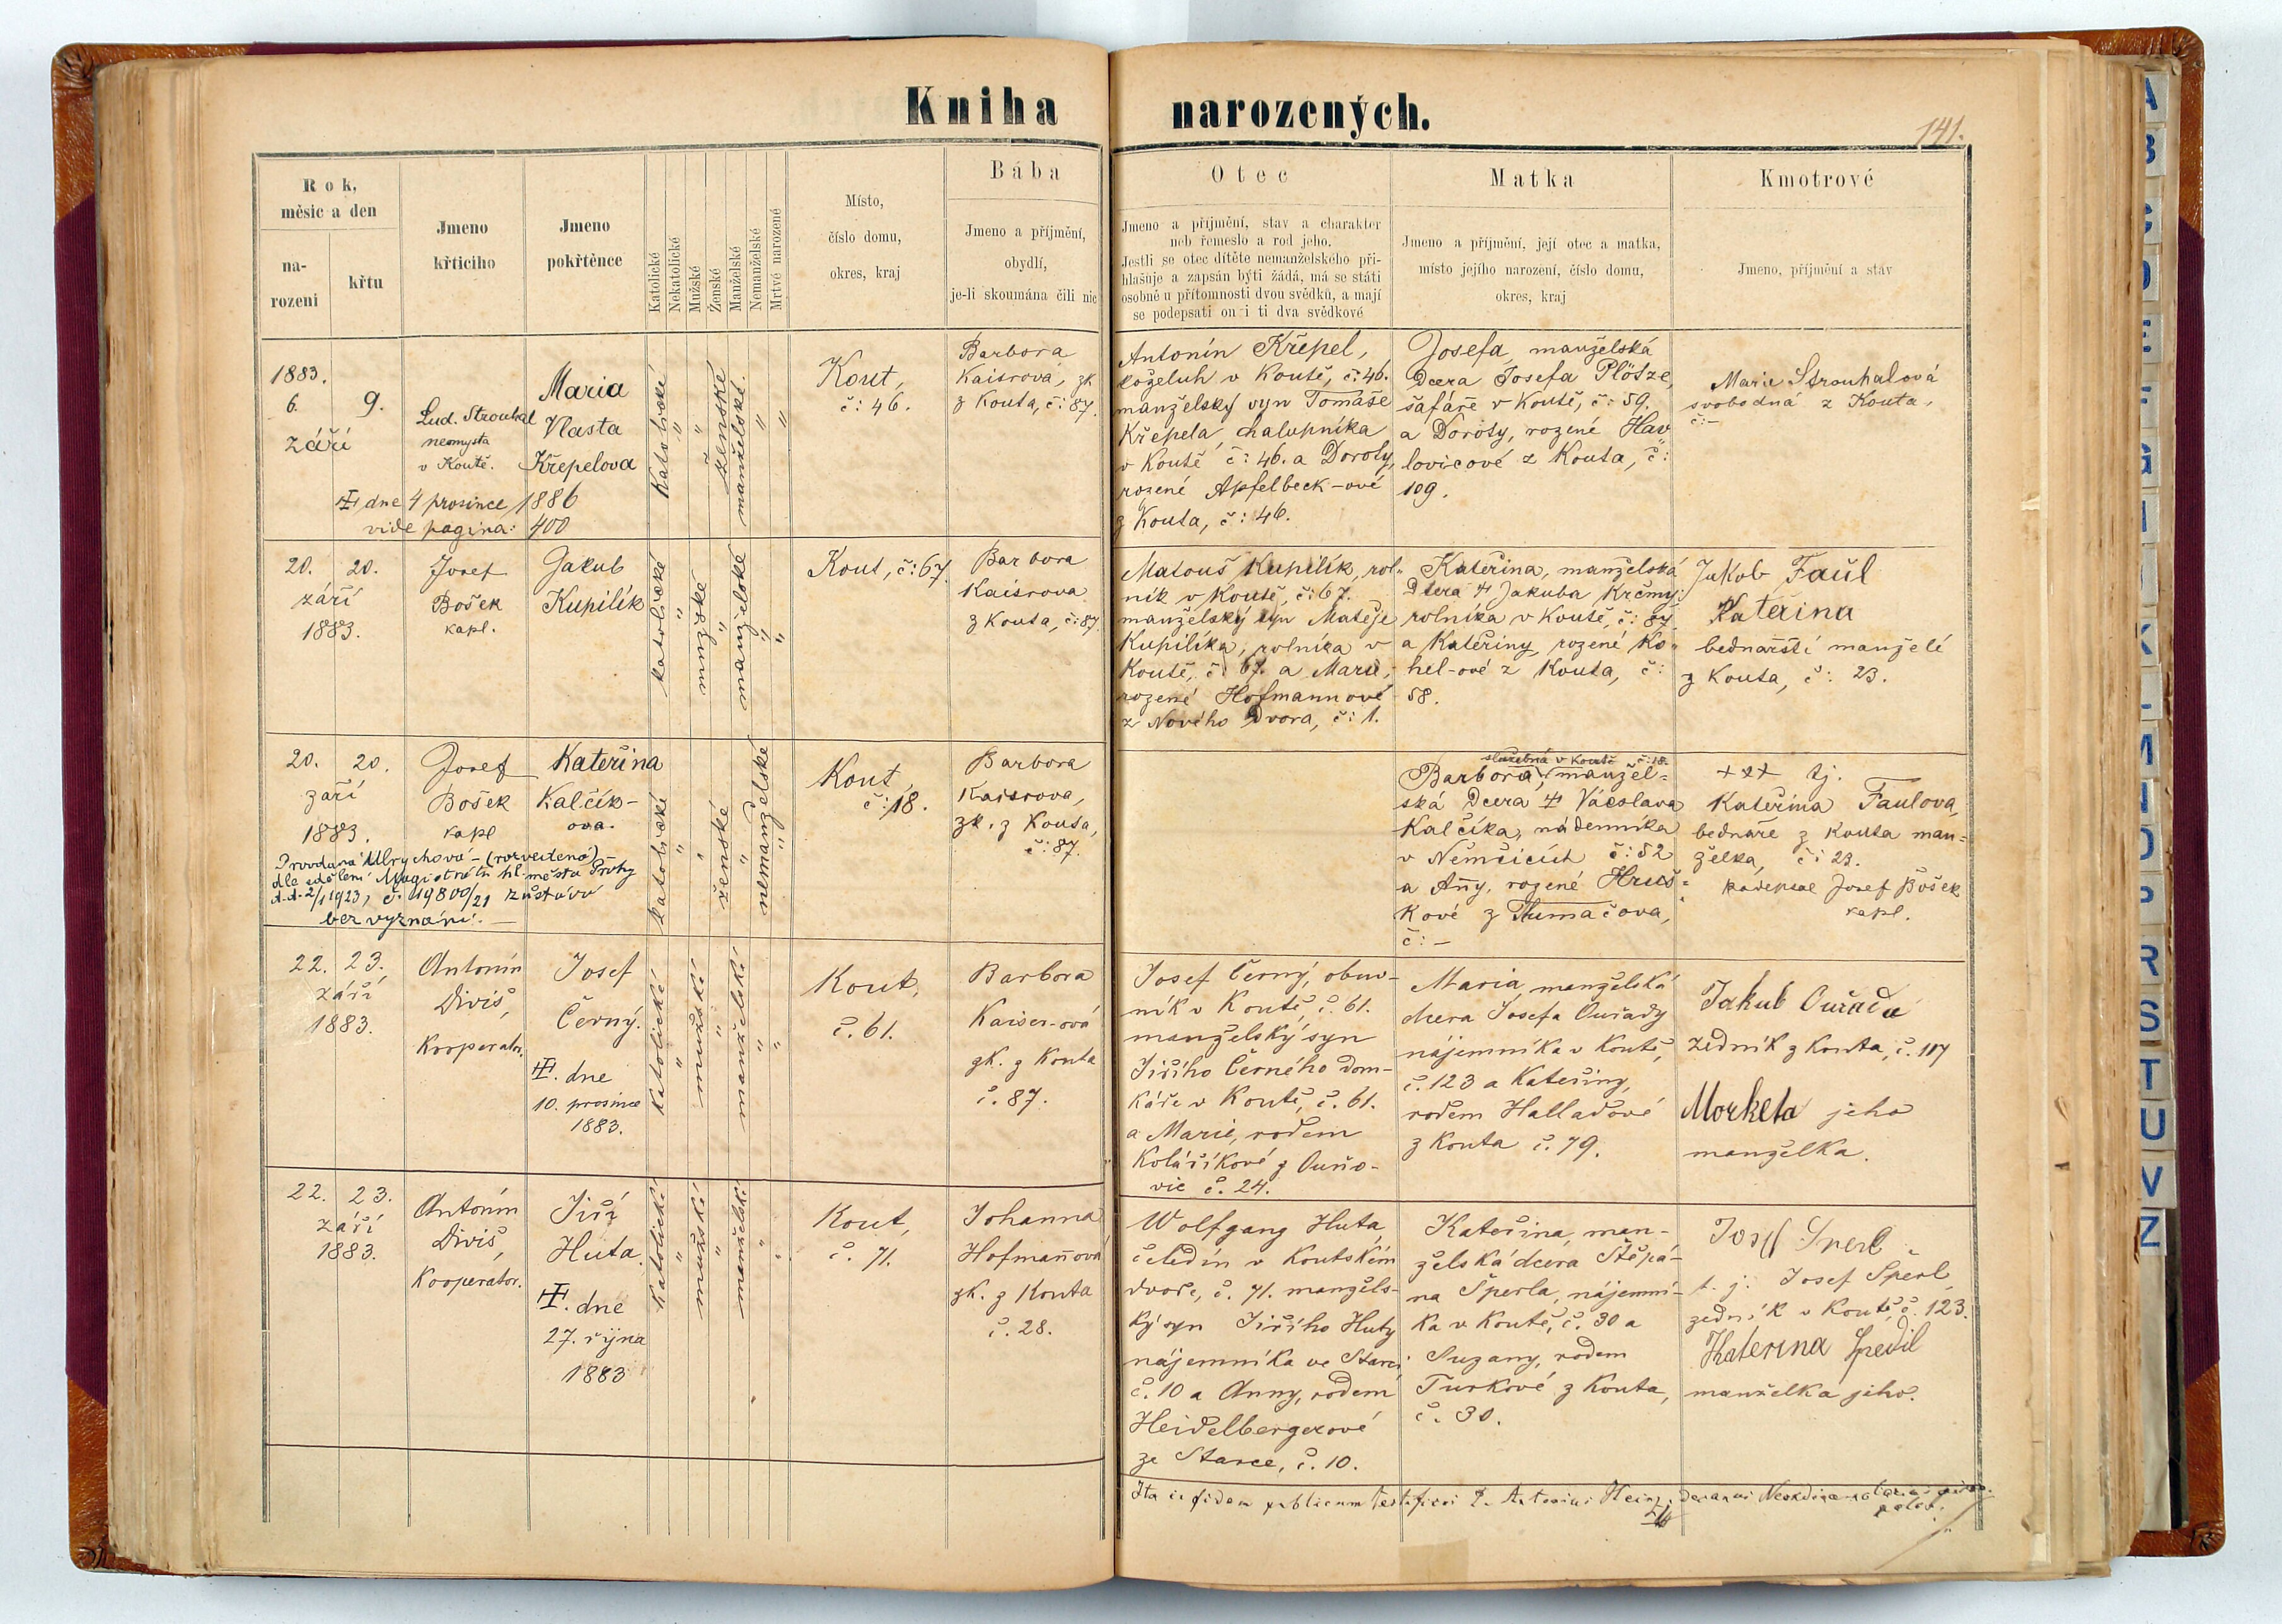 Kniha narozených.
141.
Rok,
měsic a den
na-
rozeni
křtu
Jmeno
křticiho
Jmeno
pokřtěnce
Katolické
Nekatolické
Mužské
Ženské
Manželské
Nemanželské
Mrtvé narozené
Místo,
číslo domu,
okres, kraj
Bába
Jmeno a příjmění,
obydlí,
je-li skoumána čili nic
Otec
Jmeno a přijmění, stav a charakter
neb řemeslo a rod jeho.
Jestli se otec dítěte nemanželského při-
hlašuje a zapsán býti žádá, má se státi
osobně u přítomnosti dvou svědků, a mají
se podepsati on i ti dva svědkové
Matka
Jmeno a příjmění, její otec a matka,
místo jejího narození, číslo domu,
okres, kraj
Kmotrové
Jmeno, příjmění a stáv
1883.
6. 9.
září
Lud. Strouhal
neomysta
v Koutě.
Maria
Vlasta
Křepelova
dne 4 prosince 1886
vide pagina: 400
Katolické
"
"
ženské
manželské
"
"
Kout,
č: 46.
Barbora
Kaisrová, zk.
z Kouta, č: 87.
Antonín Křepel,
koželuh v Koutě, č: 46.
manželský syn Tomáše
Křepela, chalupníka
v Koutě č: 46. a Doroty,
rozené Apfelbeck-ové
z Kouta, č: 46.
Josefa, manželská
dcera Josefa Plötze,
šafáře v Koutě, č: 59.
a Doroty, rozené Hav„
lovicové z Kouta, č:
109.
Marie Strouhalová
svobodná z Kouta,
č: –
20. 20.
září
1883.
Josef
Bošek
kapl.
Jakub
Kupilík
katolické
"
mužské
"
manželské
"
"
Kout, č: 67.
Barbora
Kaisrova
z Kouta, č: 87.
Matouš Kupilík, rol„
ník v Koutě, č: 67.
manželský syn Matěje
Kupilíka, rolníka v
Koutě, č: 67. a Marie,
rozené Hofmannové
z Nového Dvora, č: 1.
Kateřina, manželská
dcera † Jakuba Krčmy
rolníka v Koutě, č: 87.
a Kateřiny, rozené Ko„
hel-ové z Kouta, č:
58.
Jakob Faül
Kateřina
bednařští manželé
z Kouta, č: 23.
20. 20.
září
1883.
Josef
Bošek
kapl
Kateřina
Kalčík-
ova.
Provdaná Ulrychová – (rozvedena)
dle sdělení Magistrátu hl. města Prahy
d.d. 2/1 1923, č. 19800/21 zůstává
bez vyznání. –
katolické
"
"
ženské
"
nemanželské
"
Kout
č: 18.
Barbora
Kaisrova,
zk. z Kouta,
č: 87.
služebná v Koutě č: 18.
Barbora, manžel=
ská dcera † Václava
Kalčíka, nádenníka
v Němčicích č: 52
a Añy, rozené Hruš=
kové z Tlumačova,
č: –
+++ tj.
Kateřina Faulova,
bednaře z Kouta man=
želka, č: 23.
Podepsal Josef Bošek
kapl.
22. 23.
září
1883.
Antonín
Diviš,
Kooperator.
Josef
Černý.
dne
10. prosince
1883.
Katolické
"
mužské
"
manželské
"
"
Kout,
č. 61.
Barbora
Kaiser-ová
zk. z Kouta
č. 87.
Josef Černý, obuv-
ník v Koutě, č. 61.
manželský syn
Jiřího Černého dom-
káře v Koutě, č. 61.
a Marie, rodem
Kolaříkové z Ouňo-
vic č. 24.
Maria manželská
dcera Josefa Ouřady
nájemníka v Koutě,
č. 123 a Kateřiny,
rodem Halladové
z Kouta č. 79.
Jakub Ouřada
zedník z Kouta, č. 117
Morketa jeho
manželka.
22. 23.
září
1883.
Antonín
Diviš,
Kooperator.
Jiří
Huta.
dne
27. října
1883
Katolické
"
mužské
"
manželské
"
"
Kout,
č. 71.
Johanna
Hofmañová
zk. z Kouta
č. 28.
Wolfgang Huta,
čeledín v Koutském
dvoře, č. 71. manžels-
ký syn Jiřího Huty
nájemníka ve Starci
č. 10 a Anny, rodem
Heidelbergerové
ze Starce, č. 10.
Kateřina, man-
želská dcera Štěpá-
na Šperla, nájemní-
ka v Koutě, č. 30 a
Suzany, rodem
Turkové z Kouta,
č. 30.
Josef Sperl
t. j. Josef Šperl,
zedník v Koutě, č. 123.
Katerina
manželka jeho.
Ita in fidem publicam testificor P. Antonius
A
B
C
D
E
F
G
I
K
L
M
O
P
R
S
T
U
V
Z